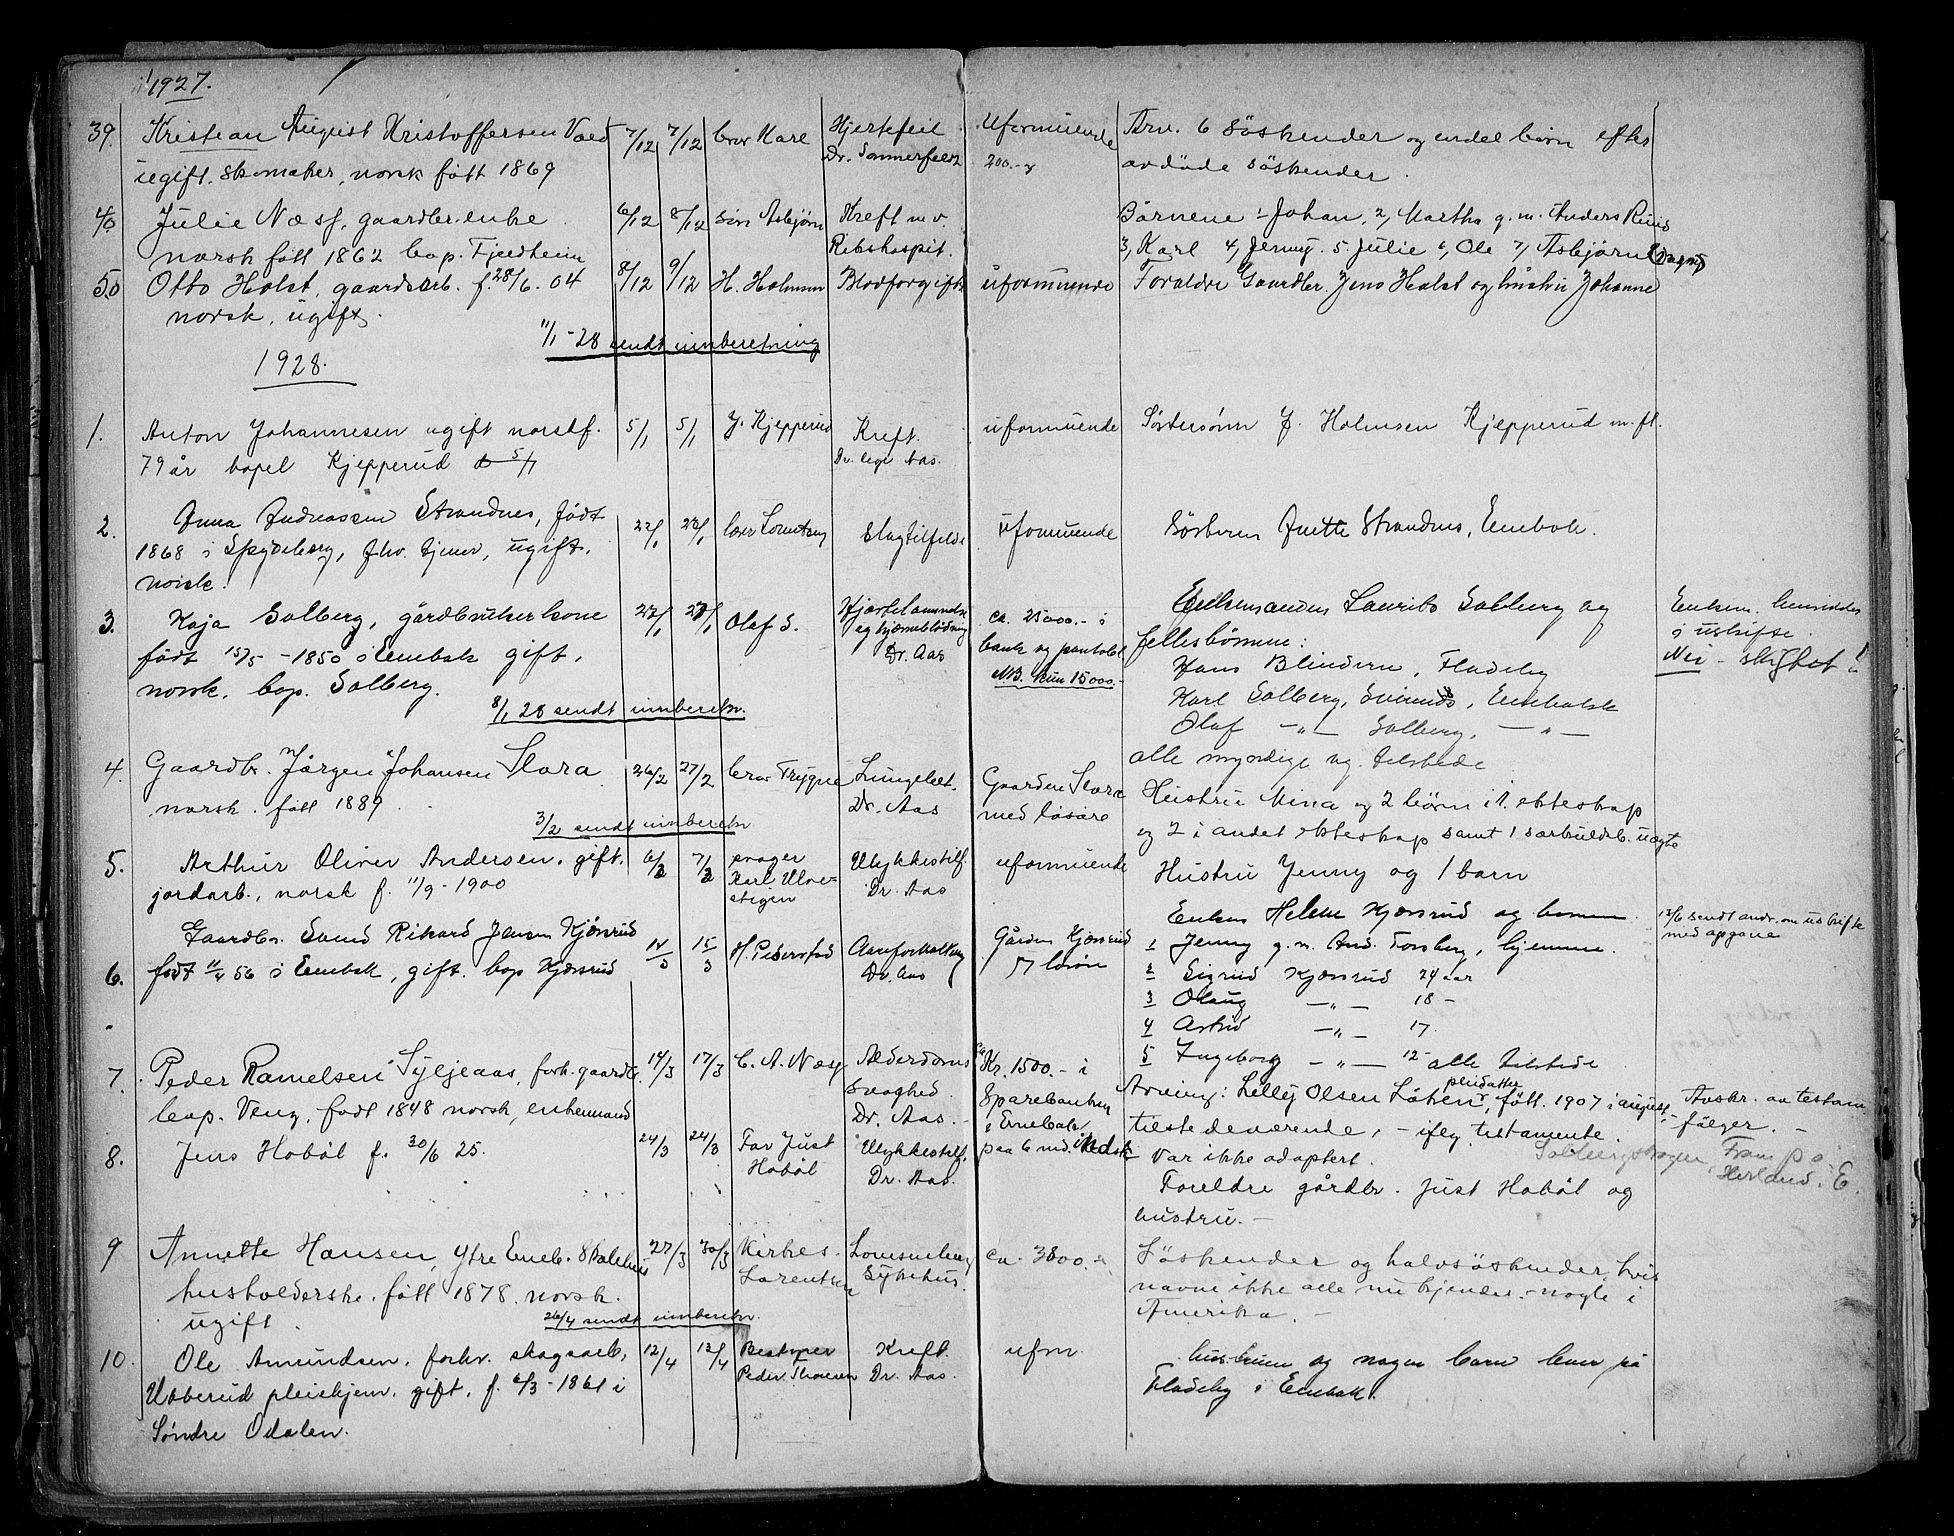 1927.
39. Kristian August Kristoffersen Vaed 7/12 7/12 bror Karl Hjertefeil Uformuende Arv. 6 Söskender og endel börn efter
ugift. skomaker, norsk född 1869 Dr. Sommerfeldt 200.- avdöde söskender.
40 Julie Næss, gaardbr. enke 6/12 8/12 sön Asbjørn Kreft m.v. Börnene 1 Johan, 2, Martha g.m. Anders Ruus
norsk född 1862 bop. Fjeldheim Rikshospit. 3, Karl 4, Jenny. 5. Julie 6, Ole 7, Asbjørn
50 Otto Holst, gaardsarb. f. 28/6. 04 8/12 9/12 H. Holmsen Blodforgift. uformuende Foraldre Gaardbr. Jens Holst og hustru Johanne
norsk, ugift.
11/1 - 28 sendt innberetning
1928.
1. Anton Johannesen ugift norsk f. 5/1 5/1 J. Kjepperud Kreft. uformuende Söstersönn J. Holmsen Kjepperud m.fl.
79 år bopel Kjepperud d 5/1 Dr. lege Aas.
2. Anna Andreassen Strandnes, född 22/1 23/1 slagtilfelde uformuende Sösteren Anette Strandnes, Enebak.
1868 i Spydeberg, fhv. tjener, ugift,
norsk.
3. Kaja Solberg, gårdbrukerkone 22/1 27/1 Olaf S. Hjertelammelse ca. 25000.- i Enkemanden Laurits Solberg og Enkem. hensidder
født 15/5 - 1850 i Enebak gift, og hjerneblødning Dr. Aas bank og pantobl. fellesbørnene: i uskifte.
norsk. bop. Solberg. NB. kun 15000.- Hans Blindern, Fladeby Nei - skiftet!
8/1 28 sendt innberetn. Karl Solberg, Enebakk
Olaf -"- Solberg, -"-
alle myndige og tilstede
4. Gaardbr. Jørgen Johansen Slora 26/2 27/2 bror Trygve Lungebet. Gaarden Slora Hustru Mina og 2 börn i 1. ekteskap
norsk. född 1889 Dr. Aas med lösöre og 2 i andet ekteskap samt 1 særkuldsb. uegte
3/2 sendt innberetn
5. Arthur Oliver Andersen, gift, 6/3 7/3 svager Ulykkestilf. uformuende Hustru Jenny og 1 barn
jordarb., norsk f. 11/9 - 1900 Karl Ulvestigen Dr. Aas
6. Gaardbr. Svend Rikard Jensen Kjönsrud 14/3 15/3 H. Pedersstad Aareforkalkning Gården Kjønsrud Enken Helene Kjønsrud og børnene. 12/6 sendt andr. om uskifte
født 11/4 56 i Enebak, gift. bop Kjønsrud Dr. Aas m løsøre 1 Jenny g.m. And. Torsberg, hjemme. med opgave
2 Sigrid Kjønsrud 24 aar
3 Olaug -"- 18 -
4 Astrid -"- 17.
5 Ingeborg -"- 12 - alle tilstede
7. Peder Ramelsen Syljeaas, forh. gaardb. 14/3 17/3 C. A. Næss Alderdoms Kr. 1500.- i Arving: Lelly Olsen Löken, pleidatter född. 1907 i august, Avskr. av testam.
bop. Veng, född 1848 norsk, enkemand svaghed Sparebanken tilstedeværende, - iflg. testamente. - fölger. -
Dr. Aas. - i Enebak Var ikke adoptert.
8. Jens Hobøl f. 30/6 25. 24/3 24/3 Far Just Ulykkestilf. paa 6 md. Foreldre gårdbr. Just Hobøl og
Hobøl Dr. Aas. hustru. -
9 Annette Hansen, ytre Eneb. 27/3 30/3 Kirkes. ca. 3800.- Söskender og halvsöskender, hvis
husholderske. född 1878. norsk. Larentsen Sykehus. navne ikke alle nu kjendes. - nogle i
ugift. Amerika. -
26/4 sendt innberetn.
10. Ole Amundsen, forhv. skogsarb, 12/4 12/4 Bestyrer Kreft. ufm. hustruen og nogen barn bor på
Ubberud pleiehjem, gift, f. 6/3 - 1861 i Peder Thoresen Dr. Aas. Fladeby i Enebak.
Söndre Odalen.